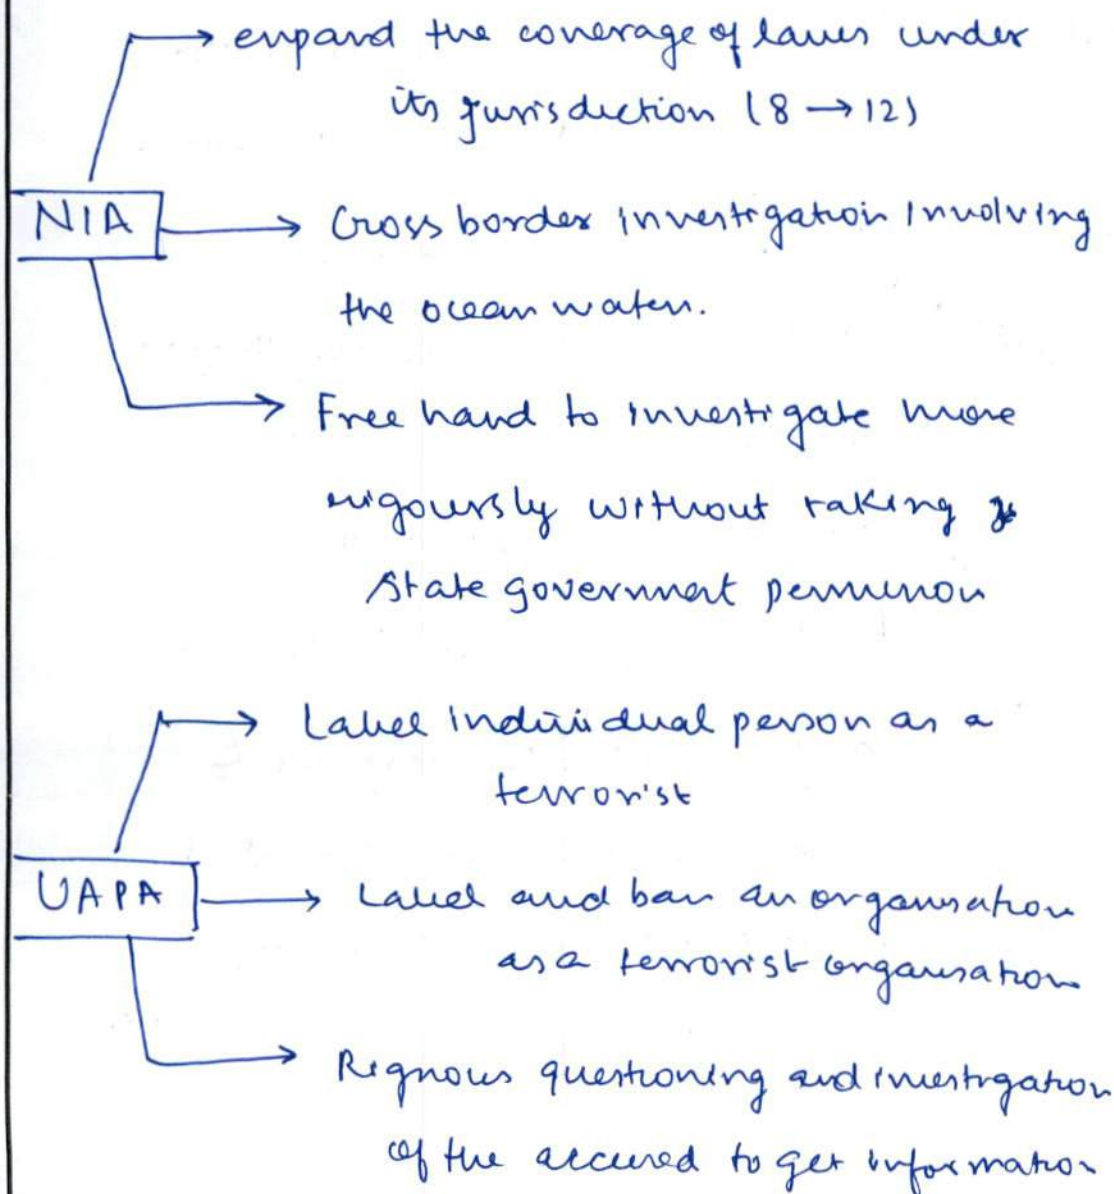 expand the coverage of laws under
its jurisdiction (8 → 12)
NIA
Cross border investigation involving
the ocean waters.
Free hand to investigate more
rigoursly without taking
State government permission
Label individual person as a
terrorist
UAPA
Label and ban an organisation
as a terrorist organisation
Rignous questioning and investigation
of the accused to get information